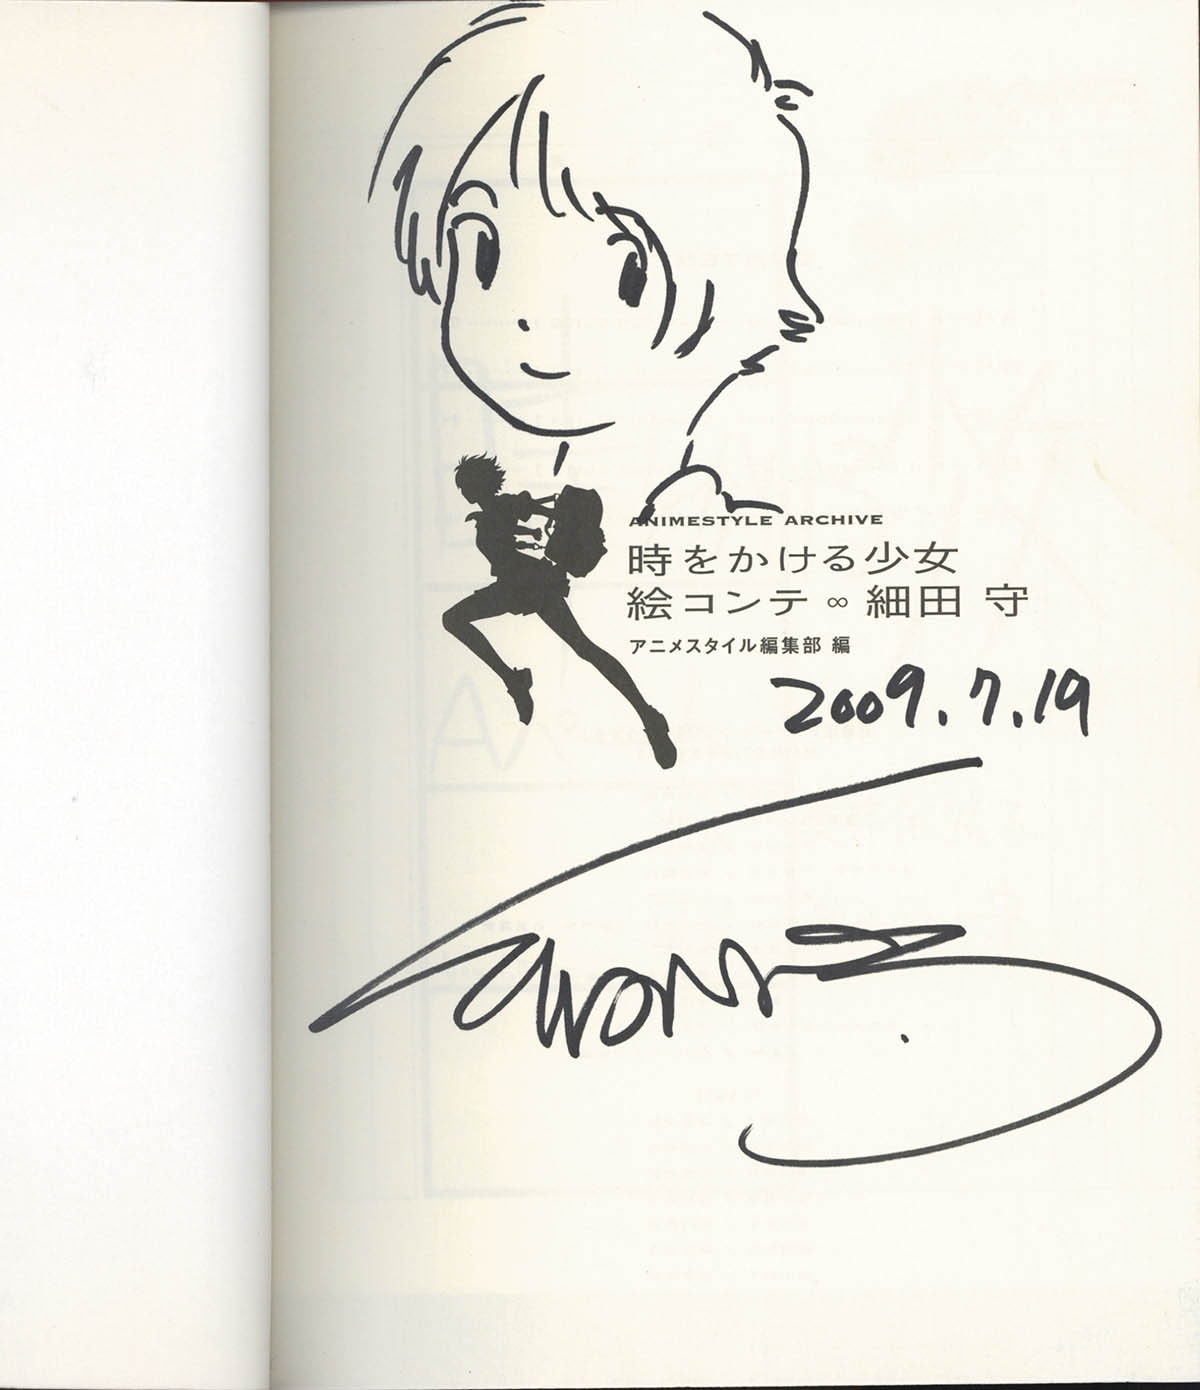 ANIMESTYLE ARCHIVE
時をかける少女
絵コンテ∞細田 守
アニメスタイル編集部 編
2009.7.19